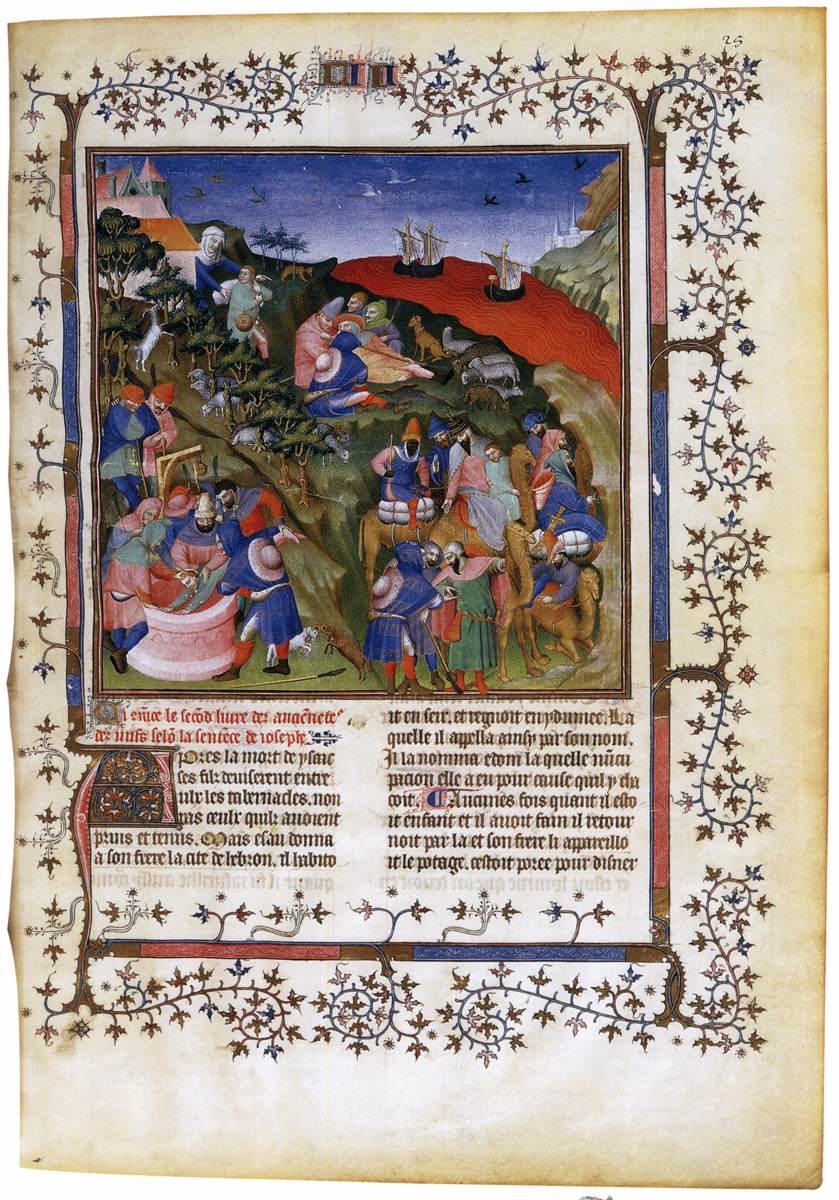 25
Ci cōmēce le secōd liure des anciēnetes
des iuifs selō la sentēce de iosephe
Apres la mort de ysaac
ses filz deuiserent entre
eulx les tabernacles. non
pas ceulx quilz auoient
prins et tenus. Mais esau donna
a son frere la cite de lebron. il habito
it en seir. et regnoit en ydumee. La
quelle il appella ainsy par son nom.
Il la nomma edom la quelle nūcu
pacion elle a eu pour cause quil y cha
coit. Aucunes fois quant il esto
it enfant et il auoit fain il retour
noit par la et son frere li appareillo
it le potage. cestoit poree pour disner